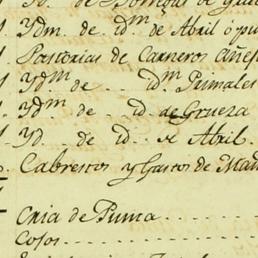 Yd. de Borregas de
Ydm. de id.m de Abril ó pu
Pastorias de Carneros Añej
Yd.m de id.m Primales
Yd.m de id. de Grueza
Yd. de id. de Abril.
Cabrestos y Gastos de Man
Cria de Puma
Cosos